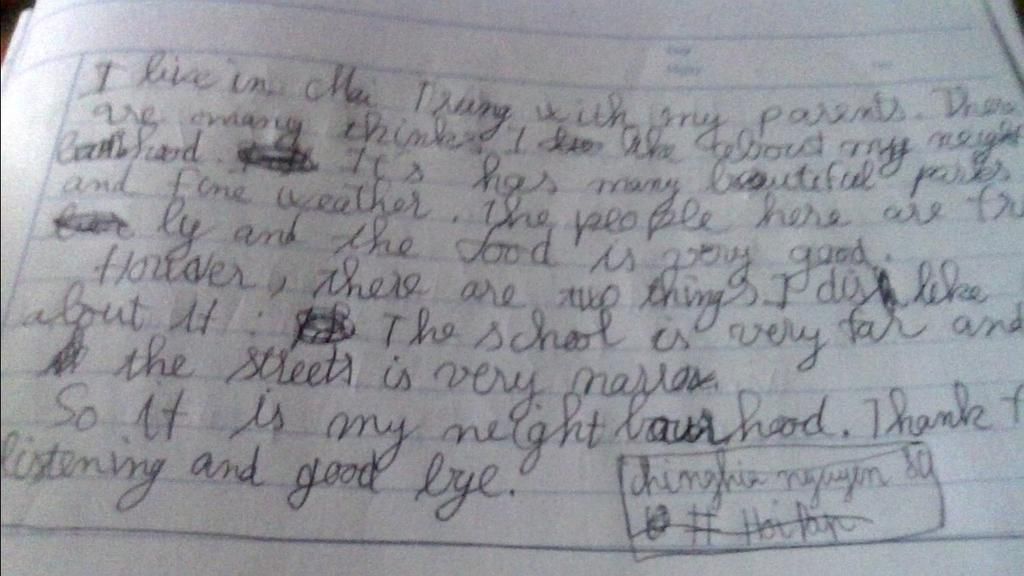 I live in Mai Trung with my parents. There
are many think I like about my neight
bourhood. It's has many beautiful parks
and fine weather. The people here are fri
ly and the food is very good.
However, there are two things I dislike
about it: The school is very far and
the streets is very narrow.
So it is my neightbourhood. Thank f
listening and good bye.
nguyen